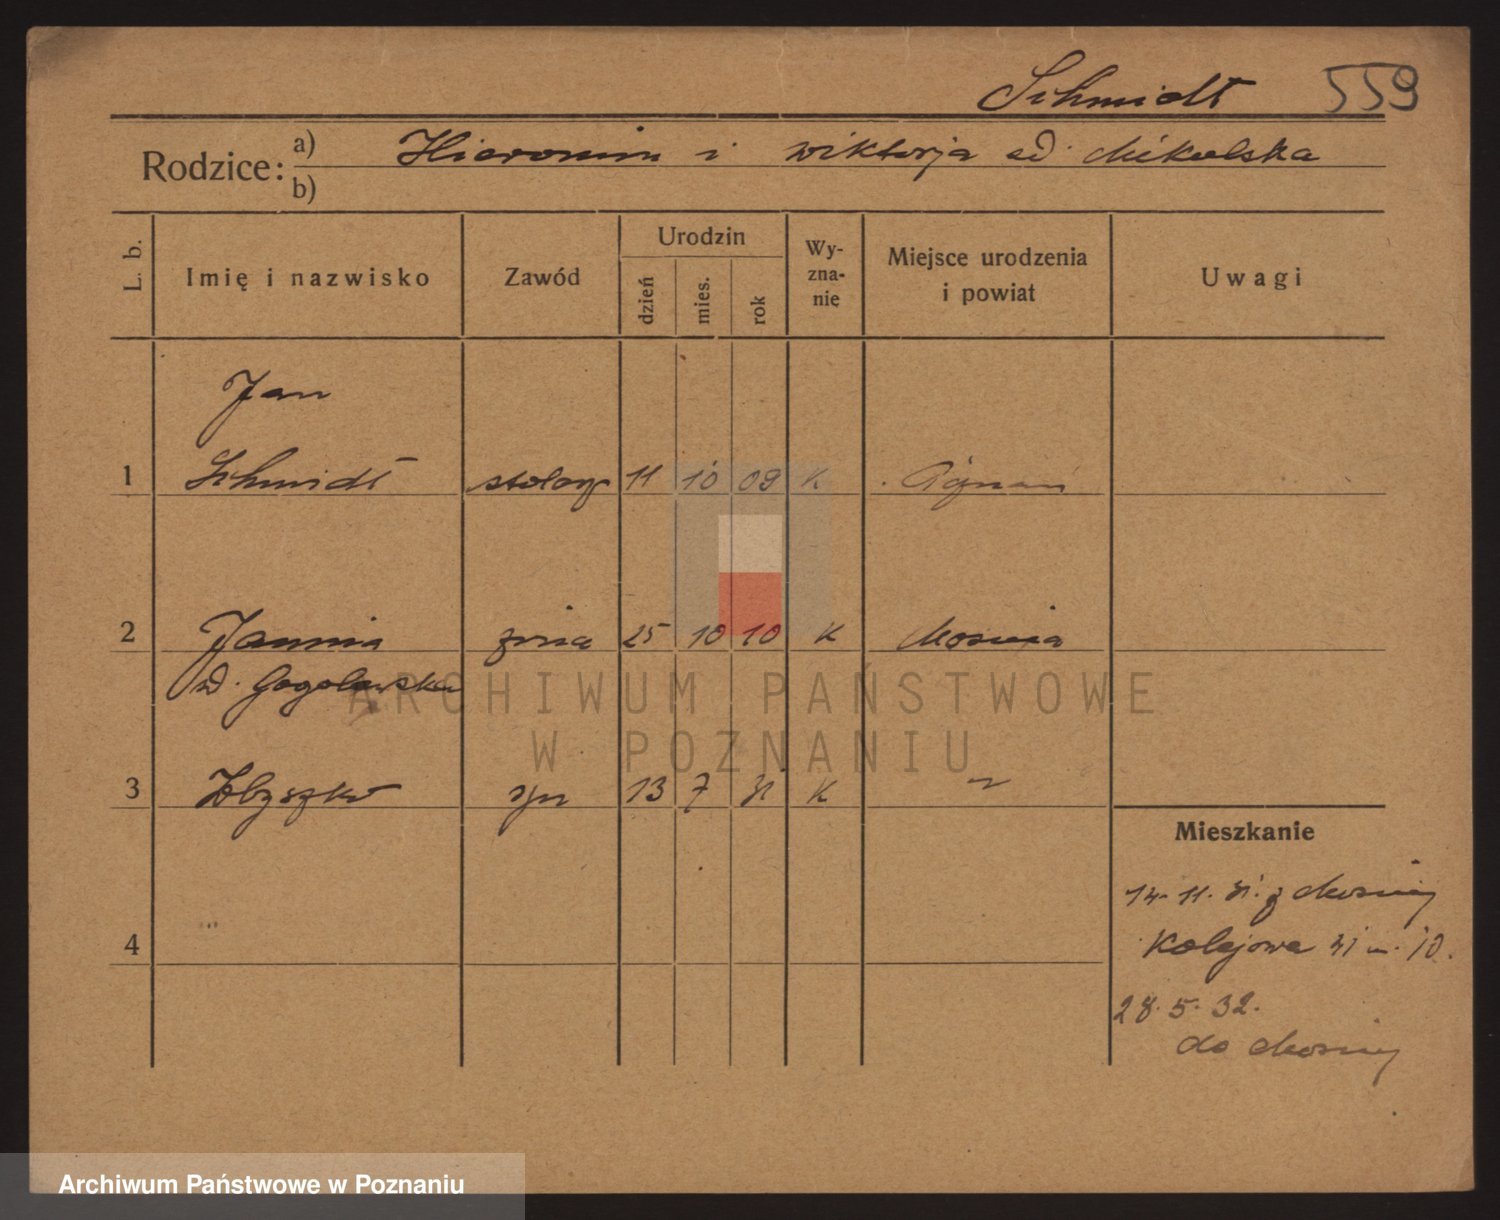 Schmidt 559
Rodzice: a) Hieronim i Wiktorja zd. Mikulska
b)
L. b. Imię i nazwisko Zawód Urodzin dzień mies. rok Wyznanie Miejsce urodzenia i powiat Uwagi
Jan
1 Schmidt stolarz 11 10 09 K
2 Janina żona 25 10 10 K Mosina
zd. Gogolewska
ARCHIWUM PAŃSTWOWE
W POZNANIU
3 Zbyszko syn 13 7 31 K "
Mieszkanie
14. 11. 31. z Mosiny
4 Kolejowa 31 m. 10.
28. 5. 32.
do Mosiny
Archiwum Państwowe w Poznaniu